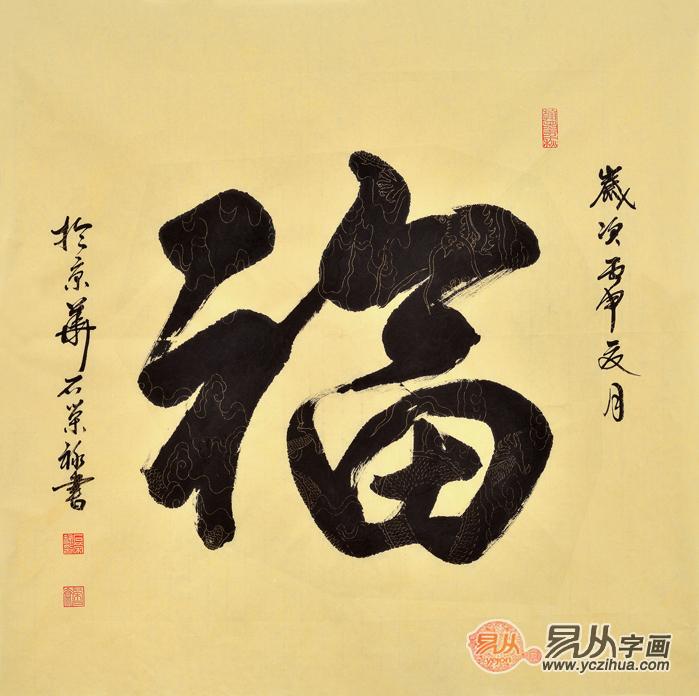 歲次丙申夏月
福
於京華石榮祿書
易从
易从字画
www.yczihua.com